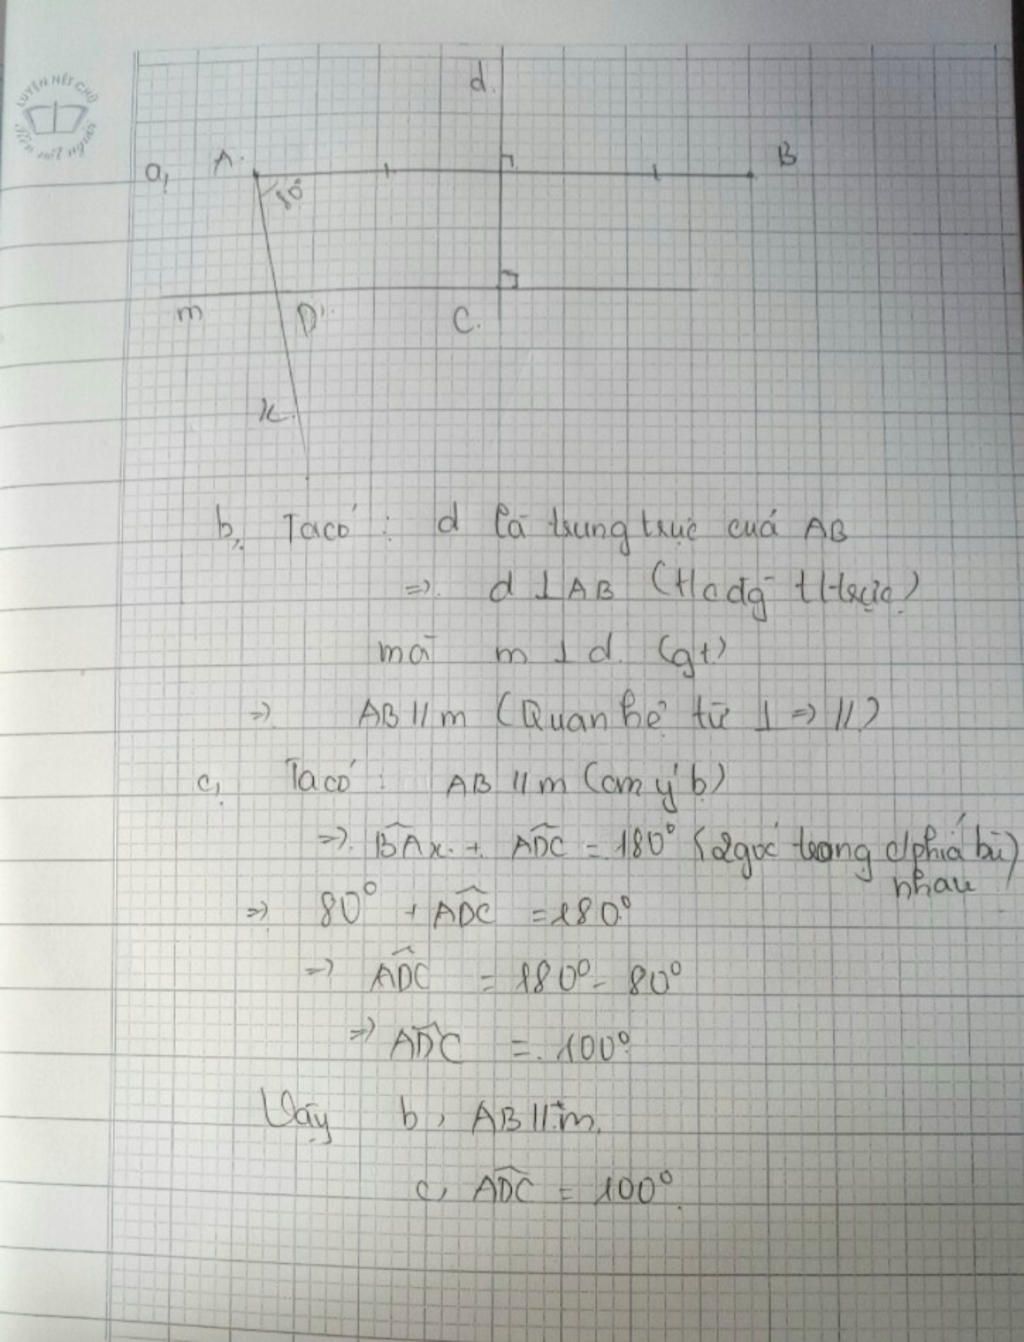 LUYỆN NÉT CHỮ
Rèn nết người
d.
a, A. B
80°
m D' C.
x
b, Ta có : d là trung trực của AB
=> d ⊥ AB (t/c đg t/trực)
mà m ⊥ d. (gt)
=> AB // m (Quan hệ từ ⊥ => //)
c, Ta có : AB // m (cm ý b)
=> BAx + ADC = 180° (2 góc trong c/phía bù
nhau)
=> 80° + ADC = 180°
=> ADC = 180° - 80°
=> ADC = 100°
Vậy b, AB // m.
c, ADC = 100°.